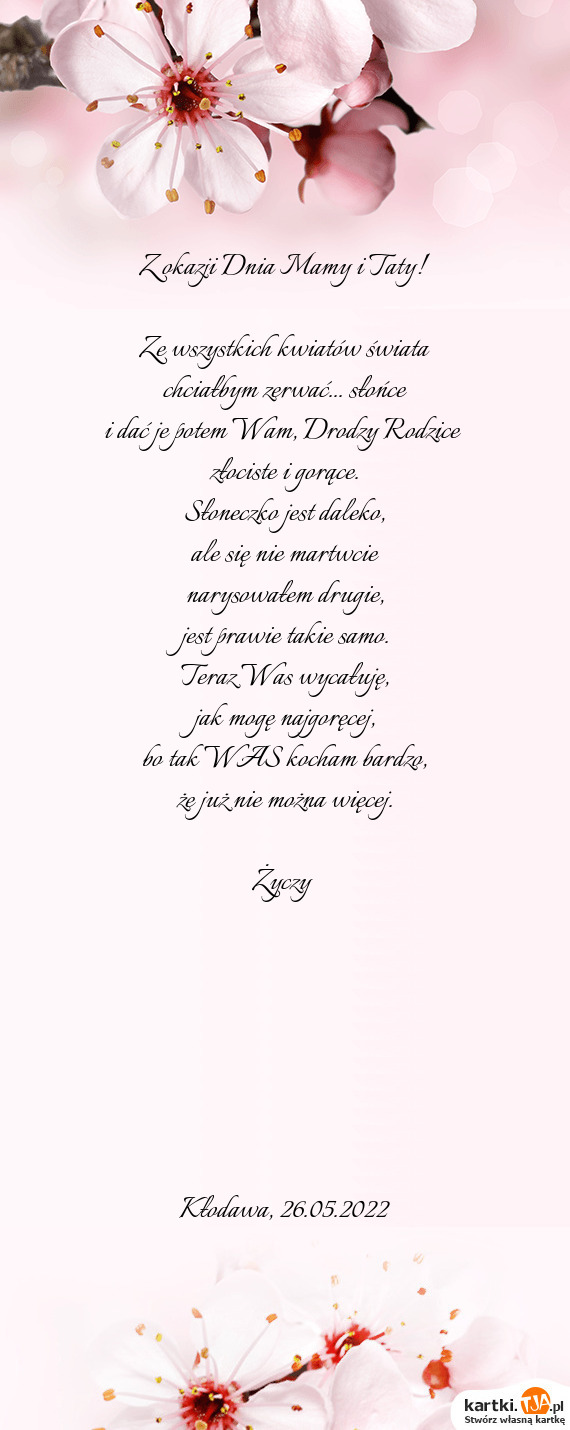 Z okazji Dnia Mamy i Taty!
Ze wszystkich kwiatów świata
chciałbym zerwać... słońce
i dać je potem Wam, Drodzy Rodzice
złociste i gorące.
Słoneczko jest daleko,
ale się nie martwcie
narysowałem drugie,
jest prawie takie samo.
Teraz Was wycałuję,
jak mogę najgoręcej,
bo tak WAS kocham bardzo,
że już nie można więcej.
Życzy
Kłodawa, 26.05.2022
kartki.TJA.pl
Stwórz własną kartkę